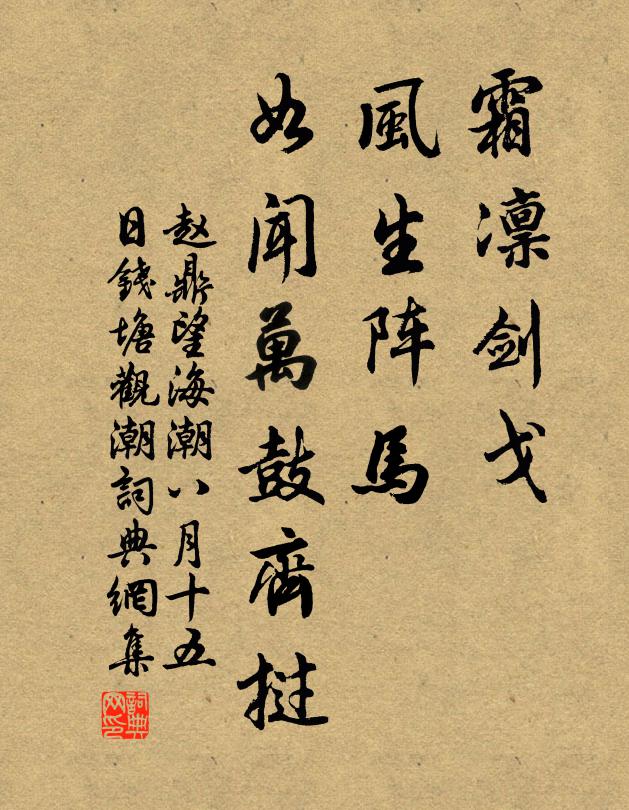 霜凛剑戈
風生阵馬
如闻萬鼓齊挝
赵鼎望海潮八月十五
日錢塘觀潮詞典網集
詞典
网印